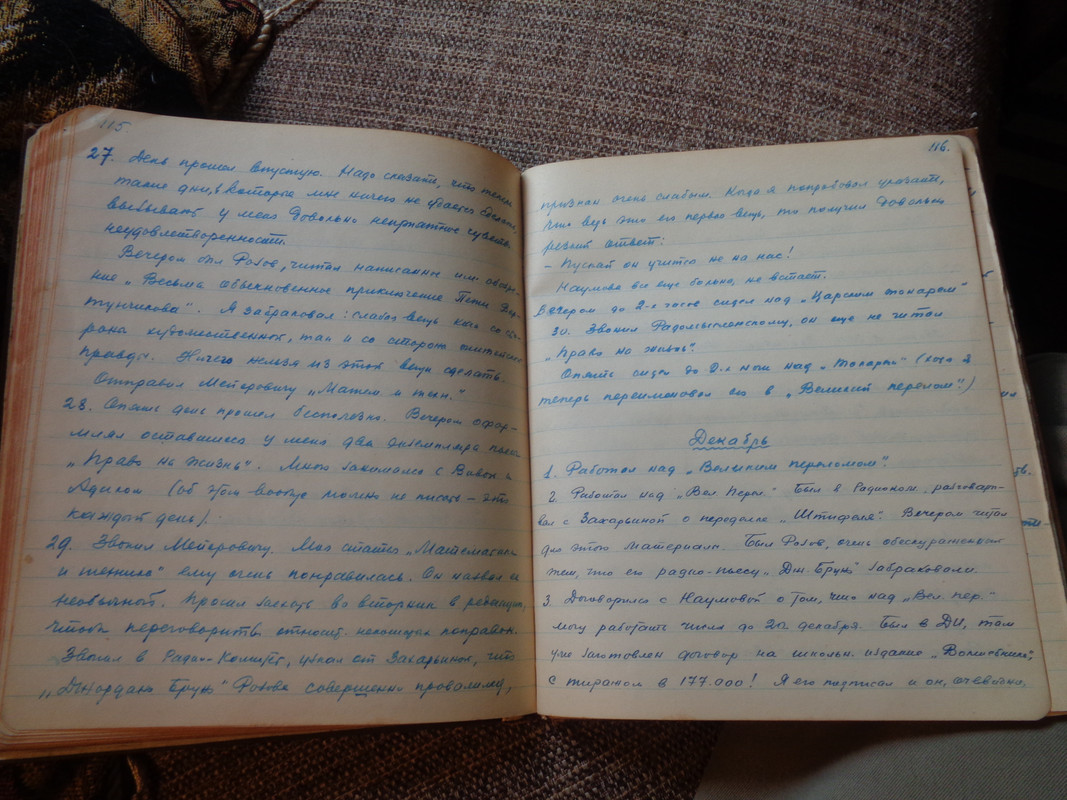 115.
27. День прошел впустую. Надо сказать, что теперь
такие дни, в которые мне ничего не удается сделать,
вызывают у меня довольно неприятное чувство
неудовлетворенности.
Вечером был Розов, читал написанное им
ние „Весьма обыкновенное приключение Пети
". Я забраковал: слабая вещь как со сто-
роны художественной, так и со стороны житейской
правды. Ничего нельзя из этой вещи сделать.
Отправил Мейеровичу „Матем. и тех."
28. Опять день прошел бесполезно. Вечером офор-
млял оставшиеся у меня два экземпляра пьесы
„Право на жизнь". Много занимался с Вовой и
Адиком (об этом вообще можно не писать – это
каждый день).
29. Звонил Мейеровичу. Моя статья „Математика
и техника" ему очень понравилась. Он назвал ее
необычной. Просил заехать во вторник в редакцию,
чтобы переговорить относит. некоторых поправок.
Звонил в Радио-Комитет, узнал от Захарьиной, что
„Джордано Бруно" Розова совершенно провалили,
116.
признан очень слабым. Когда я попробовал указать,
что ведь это его первая вещь, то получил довольно
резкий ответ:
– Пускай он учится не на нас!
Наумова все еще больна, не встает.
Вечером до 2-х часов сидел над „Царским токарем"
30. Звонил Радомысленскому, он еще не читал
„Право на жизнь".
Опять сидел до 2-х ночи над „Токарем" (хотя я
теперь переименовал его в „Великий перелом".)
Декабрь
1. Работал над „Великим переломом".
2. Работал над „Вел. Перел." Был в Радиоком., разговари-
вал с Захарьиной о переделке „Штифеля". Вечером читал
для этого материалы. Был Розов, очень обескуражен
тем, что его радио-пьесу „Дж. Бруно" забраковали.
3. Договорился с Наумовой о том, что над „Вел. пер."
могу работать числа до 20 декабря. Был в ДИ, там
уже заготовлен договор на школьн. издание „Волшебника",
с тиражом в 177.000! Я его подписал и он, очевидно,